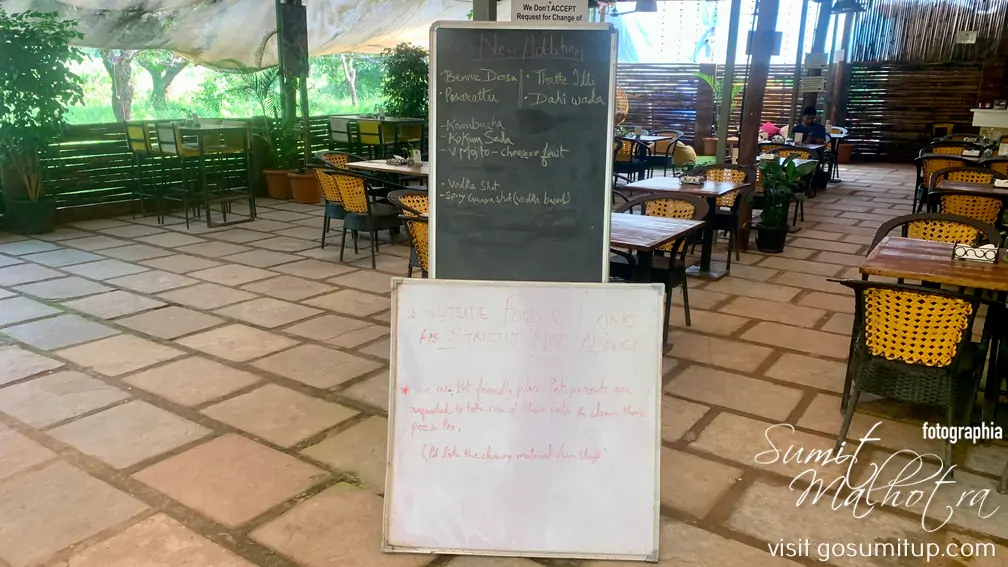 We Don't ACCEPT
Request for Change of
New Addition
· Benne Dosa
· Pesarattu
· Thatte Idli
Dahi wada
- Kombucha
- Kokum Soda
- V Mojito - choice of fruit
- Vodka Shot
- Spicy Guava shot (vodka based)
OUTSIDE FOOD & DRINKS
ARE STRICTLY NOT
friendly place. Pet parents are
requested to take care of their pets & clean their
pee & Poo.
(Pls take the cleaning material from staff
fotographia
Sumit
Malhotra
visit gosumitup.com